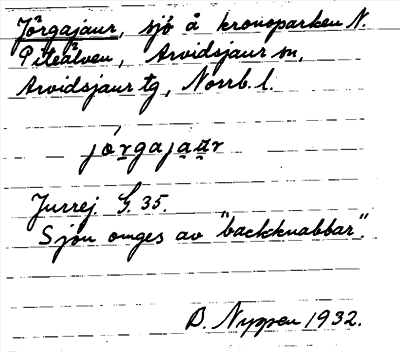 Jörgajaur, sjö å kronoparken N.
Piteälven, Arvidsjaur sn,
Arvidsjaur tg, Norrb. l.
jȯ́r̠gaja̤a̤r
Jurrej. G. 35.
Sjön omges av "backknabbar".
B. Nyman 1932.